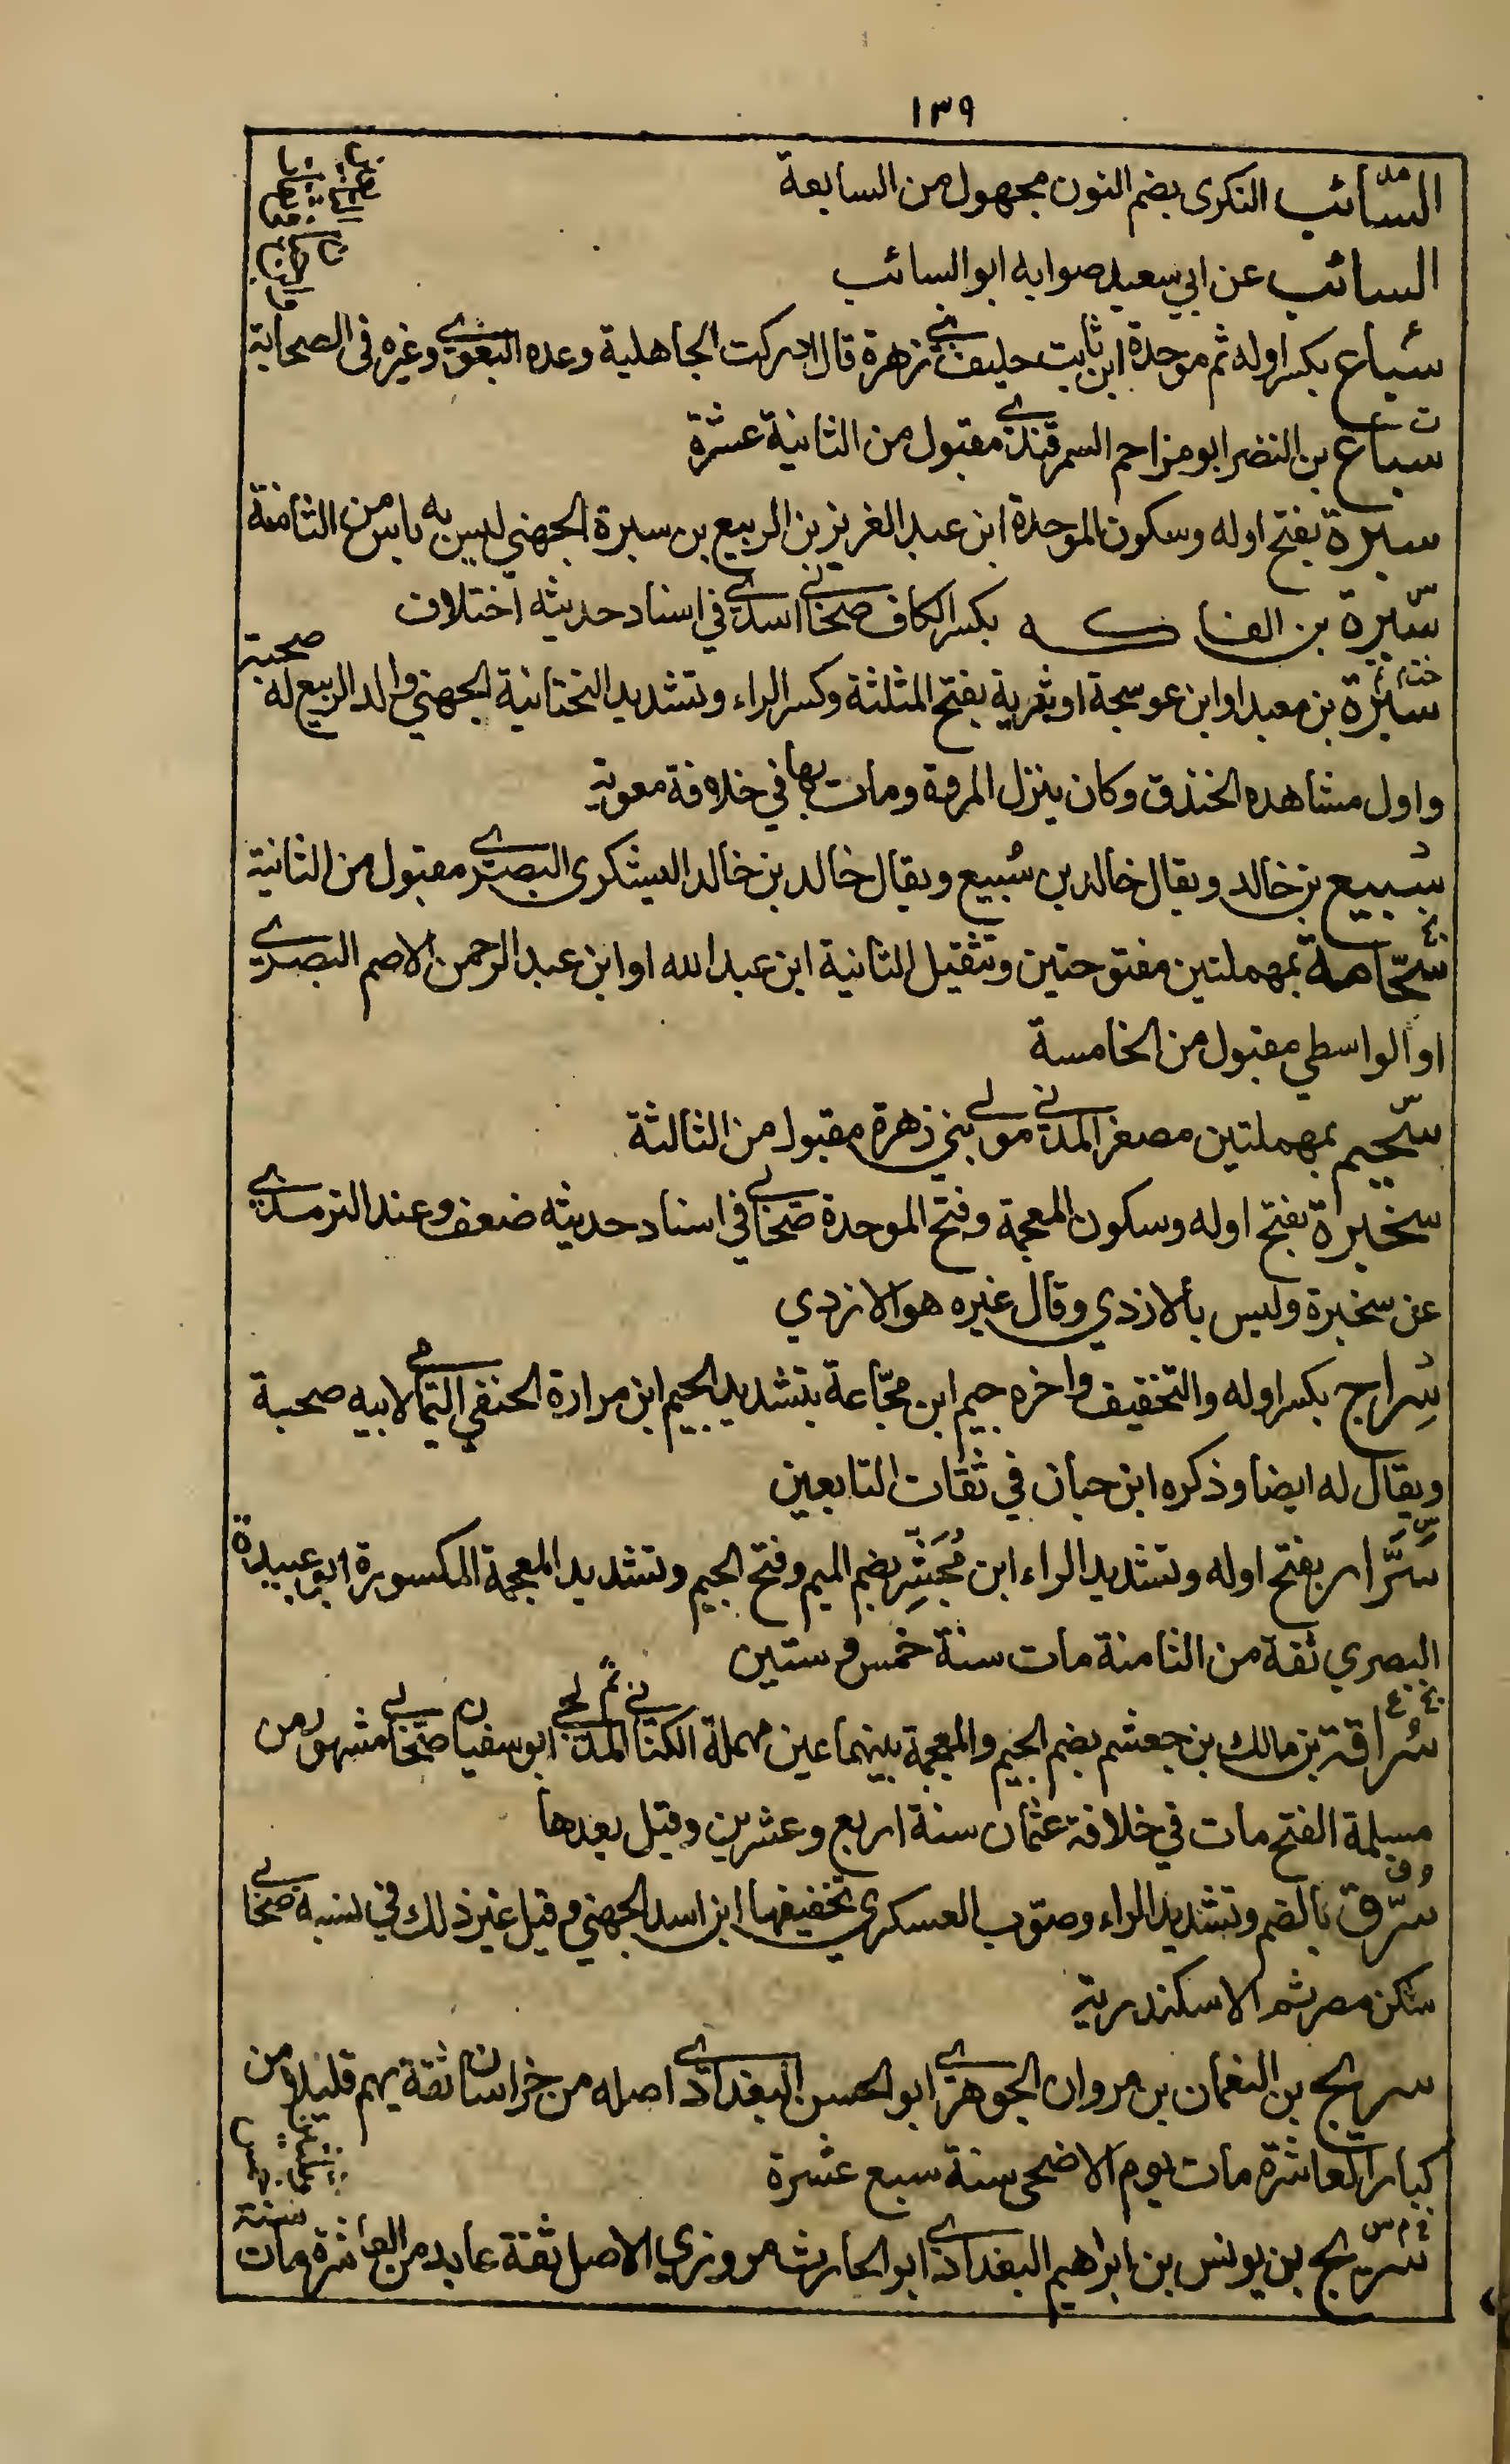 ١٣٩
مد
السّائب النكرى بضم النون مجهول من السابعة
السائب عن ابي سعيد صوابه ابو السائب
سباع بكسر اوله ثم موحدة ابن ثابت حليف بني زهرة قال ادركت الجاهلية وعده البغوي وغيره فى الصحابة
ت
سباع بن النضر ابو مزاحم السمرقندي مقبول من الثانية عشرة
سبرة بفتح اوله وسكون الموحدة ابن عبد العزيز بن الربيع بن سبرة الجهني ليس به باس من الثامنة
س
سبرة بن الفاكه بكسر الكاف صحابي اسدي في اسناد حديثه اختلاف
سبرة بن معبد او ابن عوسجة او ثرية بفتح المثلثة وكسر الراء وتشديد التحتانية الجهني والد الربيع له صحبة
واول مشاهده الخندق وكان ينزل المروة ومات بها في خلافة معوية
د
سبيع بن خالد ويقال خالد بن سُبيع ويقال خالد بن خالد اليشكرى البصري مقبول من الثانية
سحّامة بمهملتين مفتوحتين وتثقيل الثانية ابن عبد الله او ابن عبد الرحمن الاصم البصري
او الواسطي مقبول من الخامسة
س
سحيم بمهملتين مصغر المدني مولى بني زهرة مقبول من الثالثة
سخبرة بفتح اوله وسكون المعجمة وفتح الموحدة صحابي في اسناد حديثه ضعف وعند الترمذي
عن سخبرة وليس بالازدي وقال غيره هو الازدي
د
سِراج بكسر اوله والتخفيف واخره جيم ابن مجّاعة بتشديد الجيم ابن مرارة الحنفي اليمامي لابيه صحبة
ويقال له ايضا وذكره ابن حبان في ثقات التابعين
س
سَرَّار بفتح اوله وتشديد الراء ابن مُجَشِّر بضم الميم وفتح الجيم وتشديد المعجمة المكسورة ابو عبيدة
البصري ثقة من الثامنة مات سنة خمس وستين
خ ٤
سُراقة بن مالك بن جعشم بضم الجيم والمعجمة بينهما عين مهملة الكناني ثم المدلجي ابو سفيان صحابي مشهور من
مسلمة الفتح مات في خلافة عثمان سنة اربع وعشرين وقيل بعدها
ق
سُرّق بالضم وتشديد الراء وصوّب العسكري تخفيفها ابن اسد الجهني وقيل غير ذلك في نسبه صحابي
سكن مصر ثم الاسكندرية
سريج بن النعمان بن مروان الجوهري ابو الحسن البغدادي اصله من خراسان ثقة يهم قليلا من
كبار العاشرة مات يوم الاضحى سنة سبع عشرة
خ م س
سريج بن يونس بن ابراهيم البغدادي ابو الحارث مروزي الاصل ثقة عابد من العاشرة مات سنة